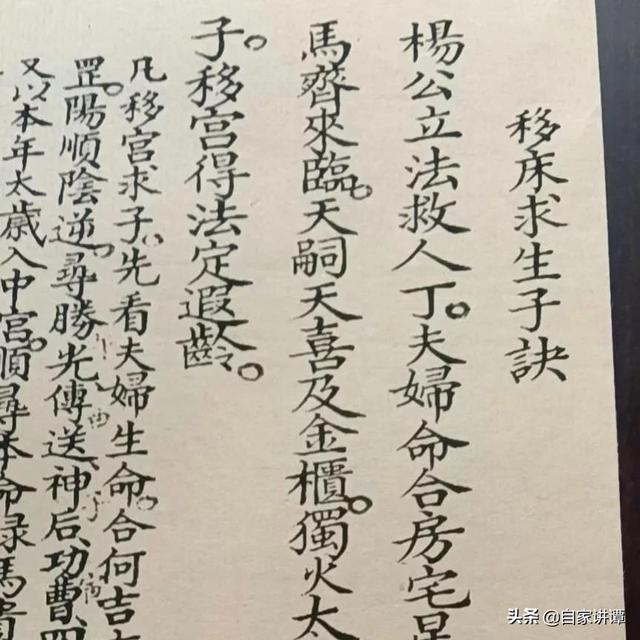 移床求生子訣
楊公立法救人丁。夫婦命合房宅星
馬齊來臨。天嗣天喜及金櫃。獨火太
子。移宮得法定遐齡。
凡移宮求子。先看夫婦生命。合何吉
罡。陽順陰逆。尋勝光傳送、神后、功曹、四
又以本年太歲入中宮。順尋本命祿馬貴
头条 @自家讲谭